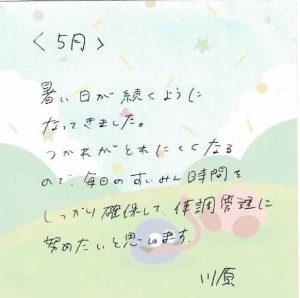 ＜5月＞
暑い日が続くように
なってきました。
つかれがとれにくくなる
ので、毎日のすいみん時間を
しっかり確保して、体調管理に
努めたいと思います。
川原